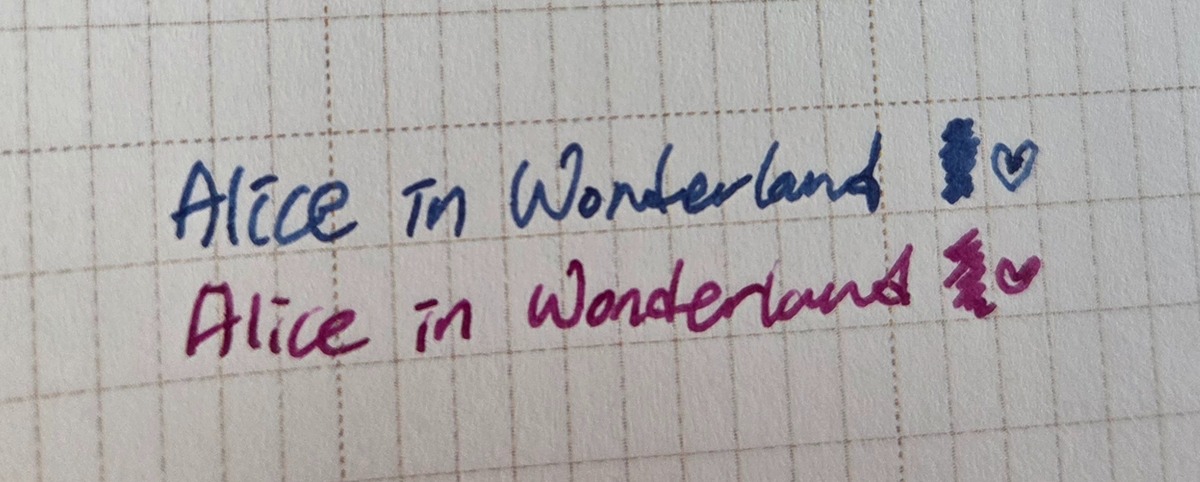 Alice in Wonderland ♡
Alice in Wonderland ♡